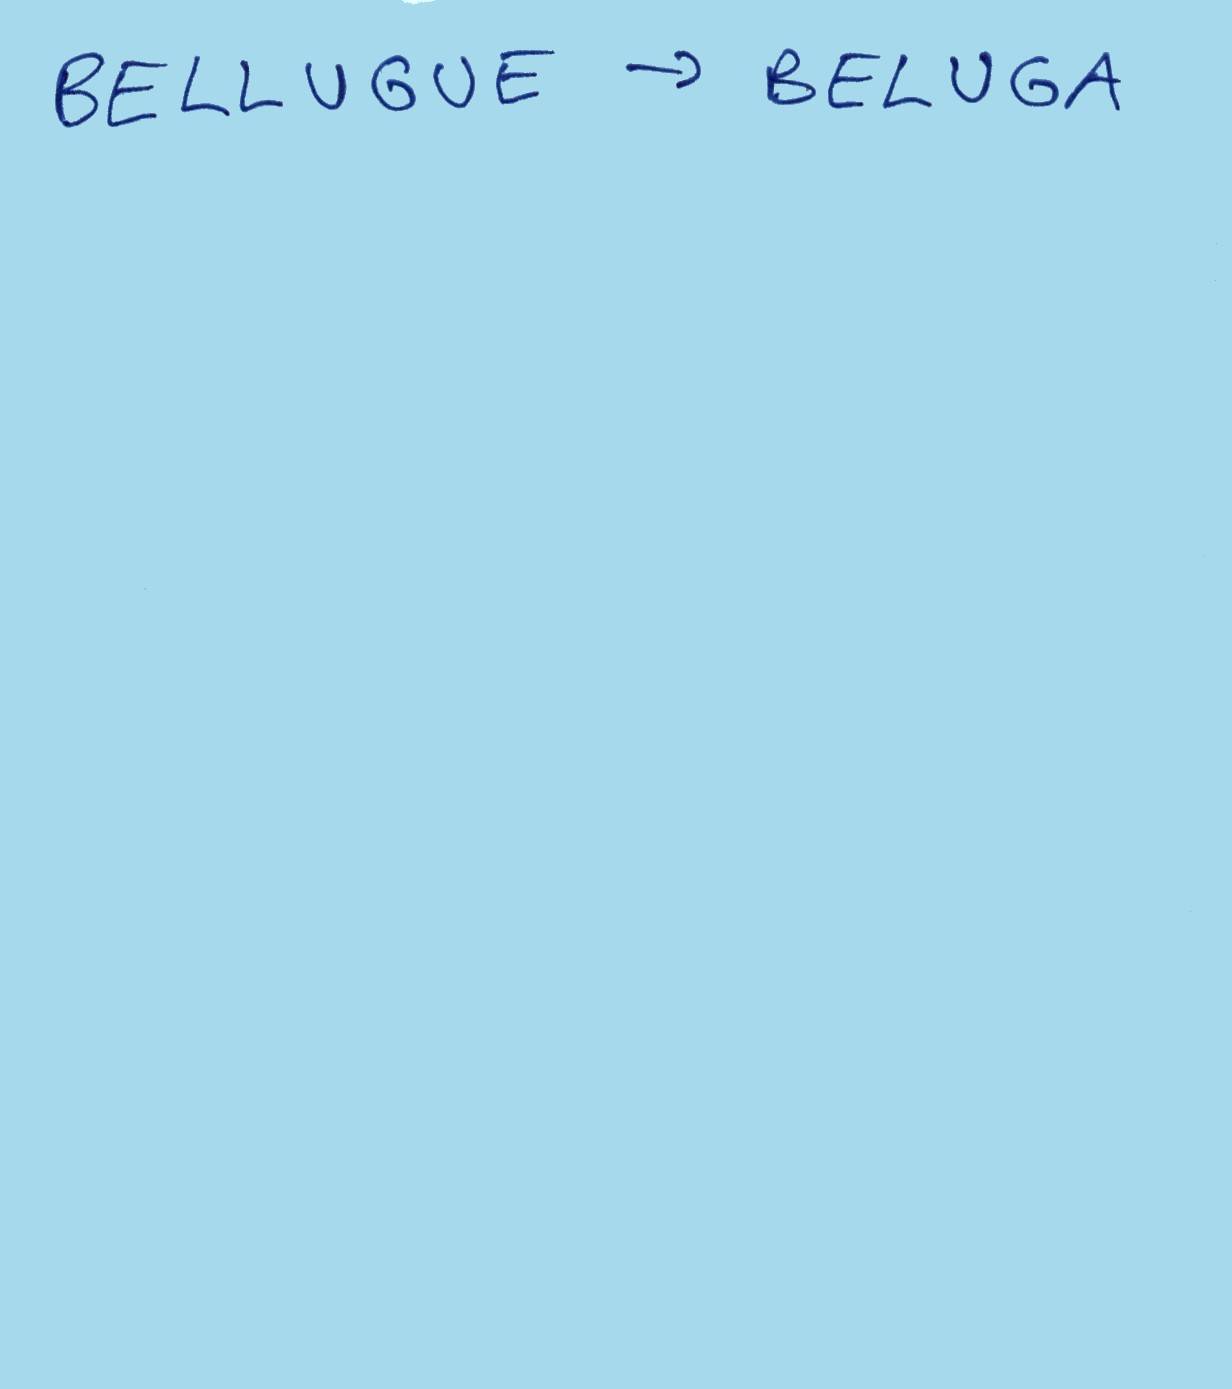 BELLUGUE → BELUGA